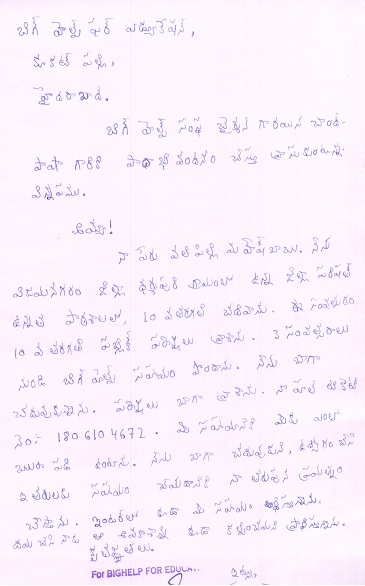 బిగ్ హెల్ప్ ఫర్ ఎడ్యూకేషన్,
కూకట్ పల్లి,
హైదరాబాద్.
బిగ్ హెల్ప్ సంస్థ చైర్మన్ గారయిన చాంద్-
పాషా గారికి పాదాభివందనం చేస్తూ వ్రాసుకుంటున్న
విన్నపము.
అయ్యా!
నా పేరు వలిపిల్లి మహేష్ బాబు. నేను
విజయనగరం జిల్లా ధర్మపురి గ్రామంలో ఉన్న జిల్లా పరిషత్
ఉన్నత పాఠశాలలో, 10 వ తరగతి చదివాను. ఈ సంవత్సరం
10 వ తరగతి పబ్లిక్ పరీక్షలు వ్రాశాను. 3 సంవత్సరాలు
నుండి బిగ్ హెల్ప్ సహాయం పొందాను. నేను బాగా
చదువుకున్నాను. పరీక్షలు బాగా వ్రాశాను. నా హాల్ టికెట్
నెం:- 1806104672. మీ సహాయానికి మీకు ఎంతో
ఋణ పడి ఉంటాను. నేను బాగా చదువుకుని, ఉద్యోగం చేసి
ఇతరులకు సహాయం చేయడానికి నా తరుపున ప్రయత్నం
చేస్తాను. ఇంటర్‌లో కూడా మీ సహాయం అర్థిస్తున్నాను.
దయ చేసి నాకు ఆ అవకాశాన్ని కూడా కల్పించమని ప్రార్థిస్తున్నాను.
కృతజ్ఞతలు.
For BIGHELP FOR EDUCA
ఇట్లు,